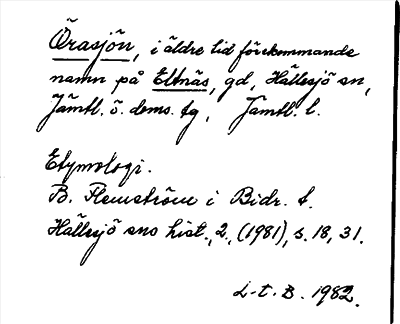 Örasjön, i äldre tid förekommande
namn på Eltnäs, gd, Hällesjö sn,
Jämtl. ö. doms. tg, Jämtl. l.
Etymologi.
B. Flemström i Bidr. t.
Hällesjö sns hist., 2, (1981), s. 18, 31.
L-t. B. 1982.